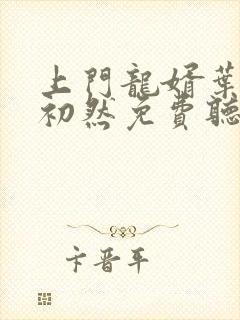 上門龍婿葉
初然免費聽
卞晋平